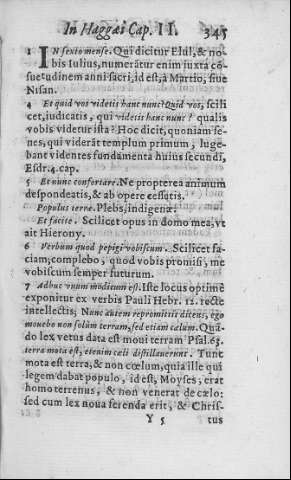 In Haggæi Cap. II. 345
1 IN sexto mense. Qui dicitur Elul, & no-
bis Iulius, numeratur enim iuxta cō
suetudinem anni sacri, id est, à Martio, siue
Nisan.
4 Et quid vos videtis hanc nunc? Quid vos, scili
cet, iudicatis, qui videtis hanc nunc? qualis
vobis videtur ista? Hoc dicit, quoniam se-
nes, qui viderāt templum primum, luge-
bant videntes fundamenta huius secundi,
Esdr. 4. cap.
5 Et nunc confortare. Ne propterea animum
despondeatis, & ab opere cessetis.
Populus terræ. Plebs, indigenæ:
Et facite. Scilicet opus in domo mea, vt
ait Hierony.
6 Verbum quod pepigi vobiscum. Scilicet fa-
ciam; complebo, quod vobis promisi, me
vobiscum semper futurum.
7 Adhuc vnum modicum est. Iste locus optimè
exponitur ex verbis Pauli Hebr. 12. rectè
intellectis; Nunc autem repromittit dicens, ego
mouebo non solùm terram, sed etiam cælum. Quā-
do lex vetus data est moui terram Psal. 65.
terra mota est, etenim cæli distillauerunt. Tunc
mota est terra, & non cœlum, quia ille qui
legem dabat populo, id est, Moyses, erat
homo terrenus, & non venerat de cælo:
sed cum lex noua ferenda erit, & Chris-
Y 5 tus